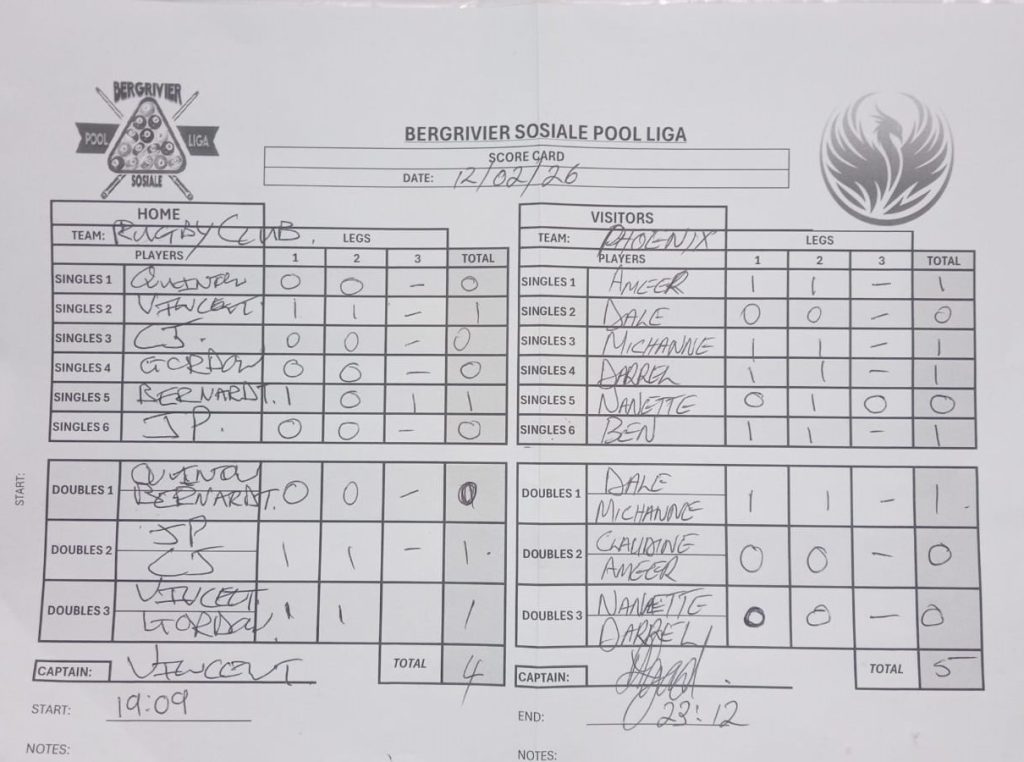 BERGRIVIER
POOL LIGA
SOSIALE
BERGRIVIER SOSIALE POOL LIGA
SCORE CARD
DATE: 12/02/26
HOME
TEAM: RUGBY CLUB. LEGS
PLAYERS 1 2 3 TOTAL
SINGLES 1 QUINON 0 0 - 0
SINGLES 2 VINCENT 1 1 - 1
SINGLES 3 CJ. 0 0 - 0
SINGLES 4 GORDON 0 0 - 0
SINGLES 5 BERNARDT. 1 0 1 1
SINGLES 6 JP. 0 0 - 0
DOUBLES 1 QUINON 0 0 - 0
BERNARDT.
DOUBLES 2 JP 1 1 - 1.
CJ
DOUBLES 3 VINCENT 1 1 1
GORDON.
CAPTAIN: VINCCENT TOTAL 4
START: 19:09
NOTES:
START:
VISITORS
TEAM: PHOENIX LEGS
PLAYERS 1 2 3 TOTAL
SINGLES 1 AMEER 1 1 - 1
SINGLES 2 DALE 0 0 - 0
SINGLES 3 MICHANNE 1 1 - 1
SINGLES 4 DARREL 1 1 - 1
SINGLES 5 NANETTE 0 1 0 0
SINGLES 6 BEN 1 1 - 1
DOUBLES 1 DALE 1 1 - 1.
MICHANNE
DOUBLES 2 CLAUDINE 0 0 - 0
AMEER
DOUBLES 3 NANETTE 0 0 - 0
DARREL
CAPTAIN: TOTAL 5
END: 23:12
NOTES: